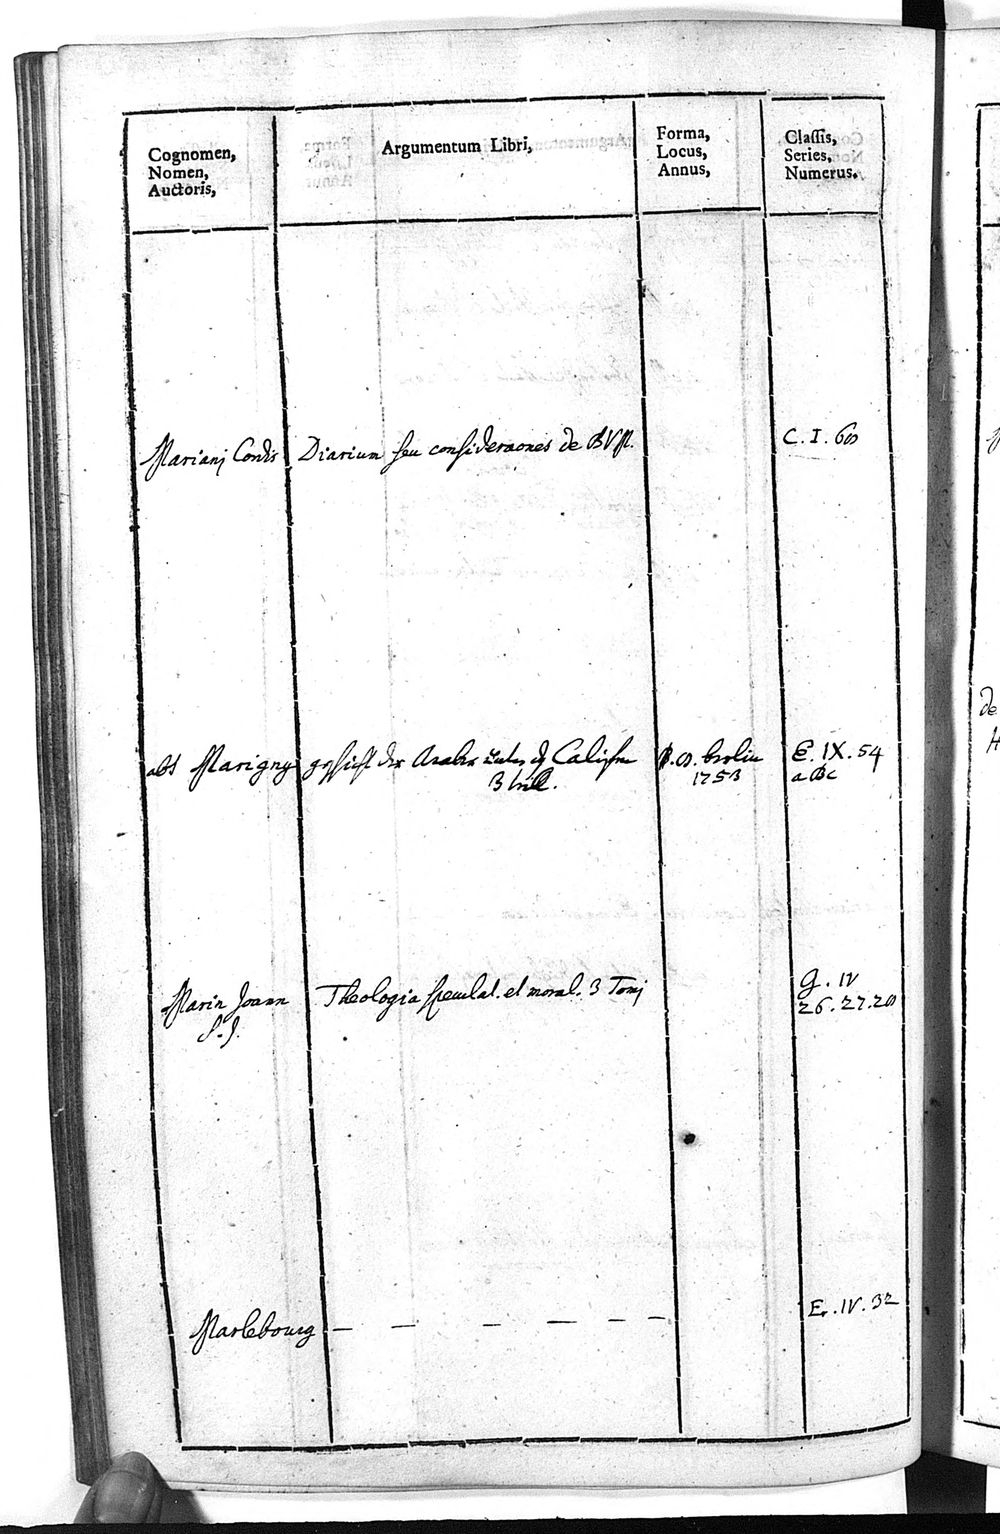 Cognomen,
Nomen,
Auctoris,
Argumentum Libri,
Forma,
Locus,
Annus,
Classis,
Series,
Numerus.
Marianj Cordis Diarium seu consideraones de BVM. C. I. 60
abt Marigny geschicht der Araber unter den Califen 8. berlin E. IX. 54
3 1753 a B c
Marin Joann Theologia speculat. et moral. 3 Tomj G. IV
S. J. 26. 27. 28
Marlebourg — — — — — — E. IV. 32
de
H